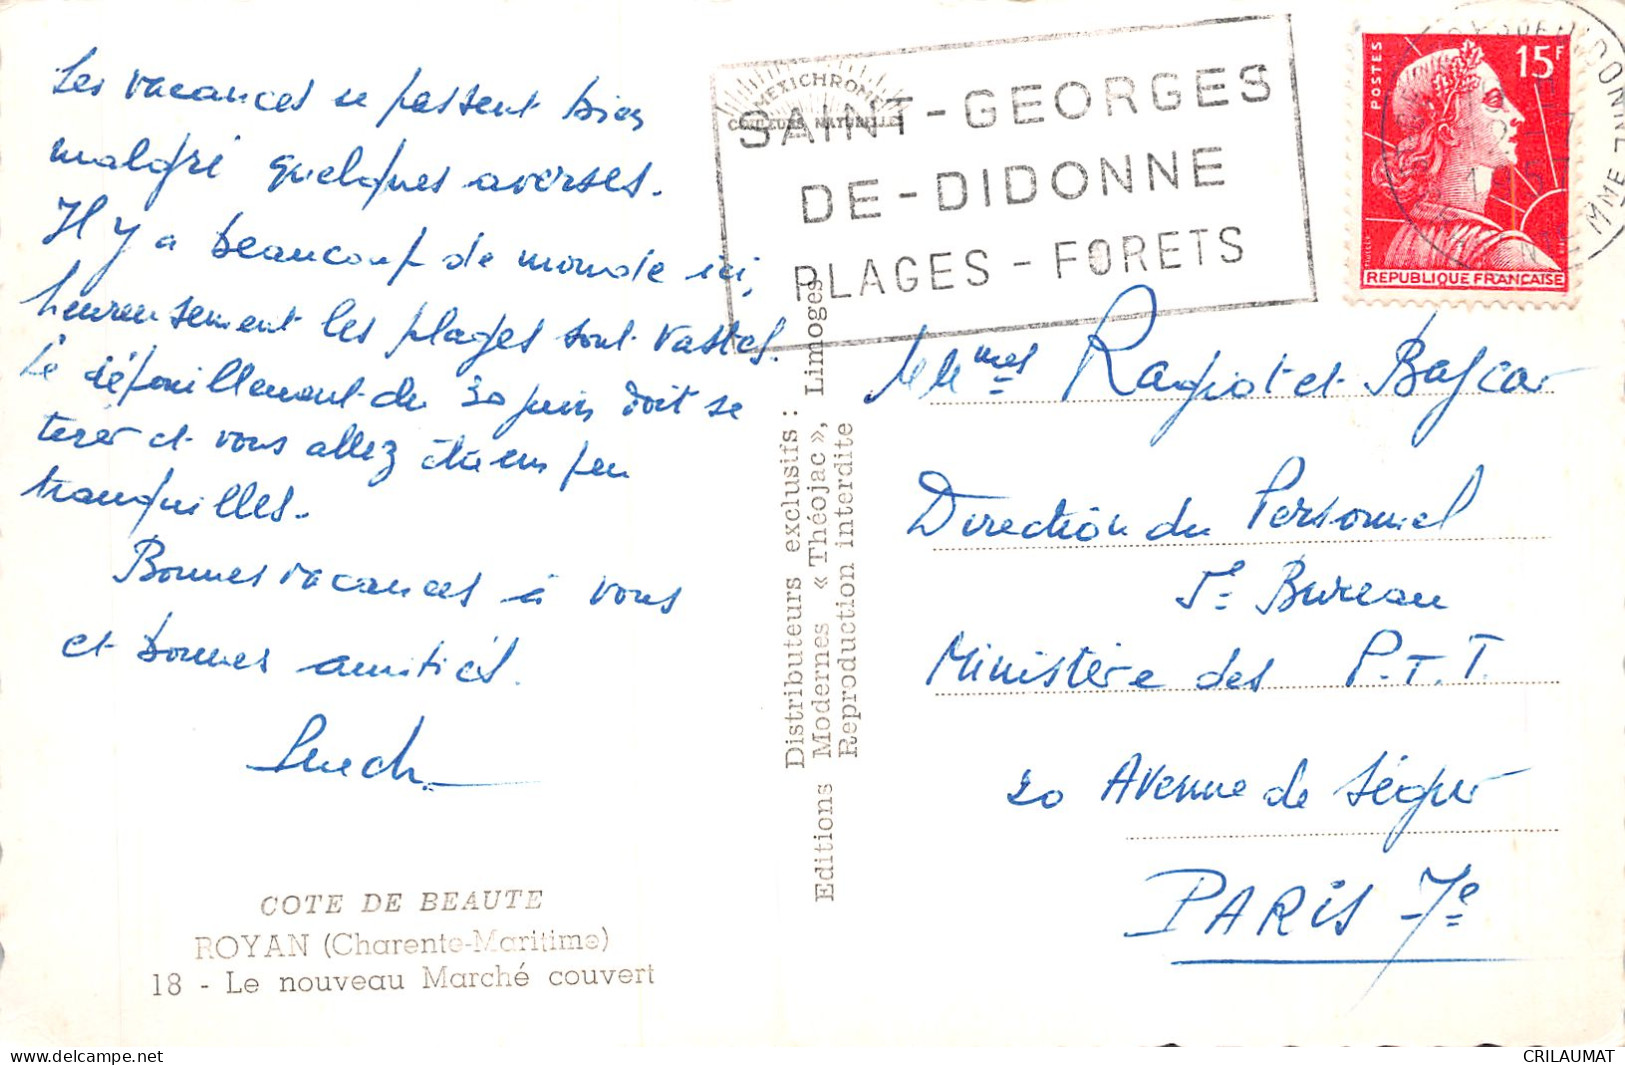 Les vacances se passent bien
malgré quelques averses.
Il y a beaucoup de monde ici,
heureusement les plages sont vastes.
Le dépouillement du 20 juin doit se
tirer et vous allez être un peu
tranquilles.
Bonnes vacances à vous
et bonnes amitiés.
COTE DE BEAUTE
ROYAN (Charente-Maritime)
18 - Le nouveau Marché couvert
Distributeurs exclusifs :
Editions Modernes « Théojac », Limoges
Reproduction interdite
MEXICHROME
COULEURS NATURELLES
SAINT-GEORGES
DE-DIDONNE
PLAGES - FORETS
POSTES
15F
REPUBLIQUE FRANÇAISE
Mmes Ragot et Bascar
Direction du Personnel
5e Bureau
Ministère des P.T.T.
20 Avenue de Ségur
PARIS 7e
delcampe.net
CRILAUMAT